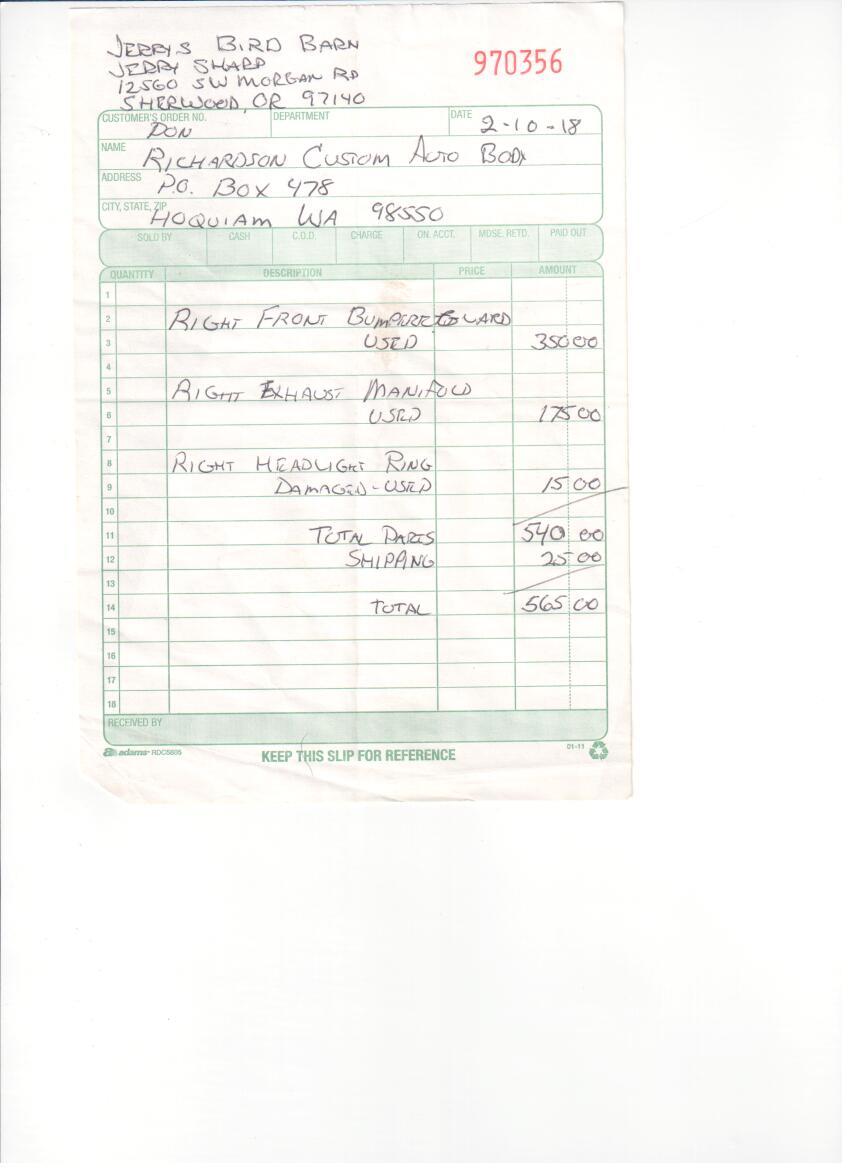 JERRYS BIRD BARN
JERRY SHARP
970356
12560 SW MORGAN RD
SHERWOOD, OR 97140
CUSTOMER'S ORDER NO. DEPARTMENT DATE
DON 2-10-18
NAME RICHARDSON CUSTOM AUTO BODY
ADDRESS P.O. BOX 478
CITY, STATE, ZIP HOQUIAM WA 98550
SOLD BY CASH C.O.D. CHARGE ON. ACCT. MDSE. RETD. PAID OUT
QUANTITY DESCRIPTION PRICE AMOUNT
1
2 RIGHT FRONT BUMPERETTE GUARD
3 USED 350 00
4
5 RIGHT EXHAUST MANIFOLD
6 USED 175 00
7
8 RIGHT HEADLIGHT RING
9 DAMAGED - USED 15 00
10
11 TOTAL PARTS 540 00
12 SHIPPING 25 00
13
14 TOTAL 565 00
15
16
17
18
RECEIVED BY
adams RDC5805 KEEP THIS SLIP FOR REFERENCE 01-11